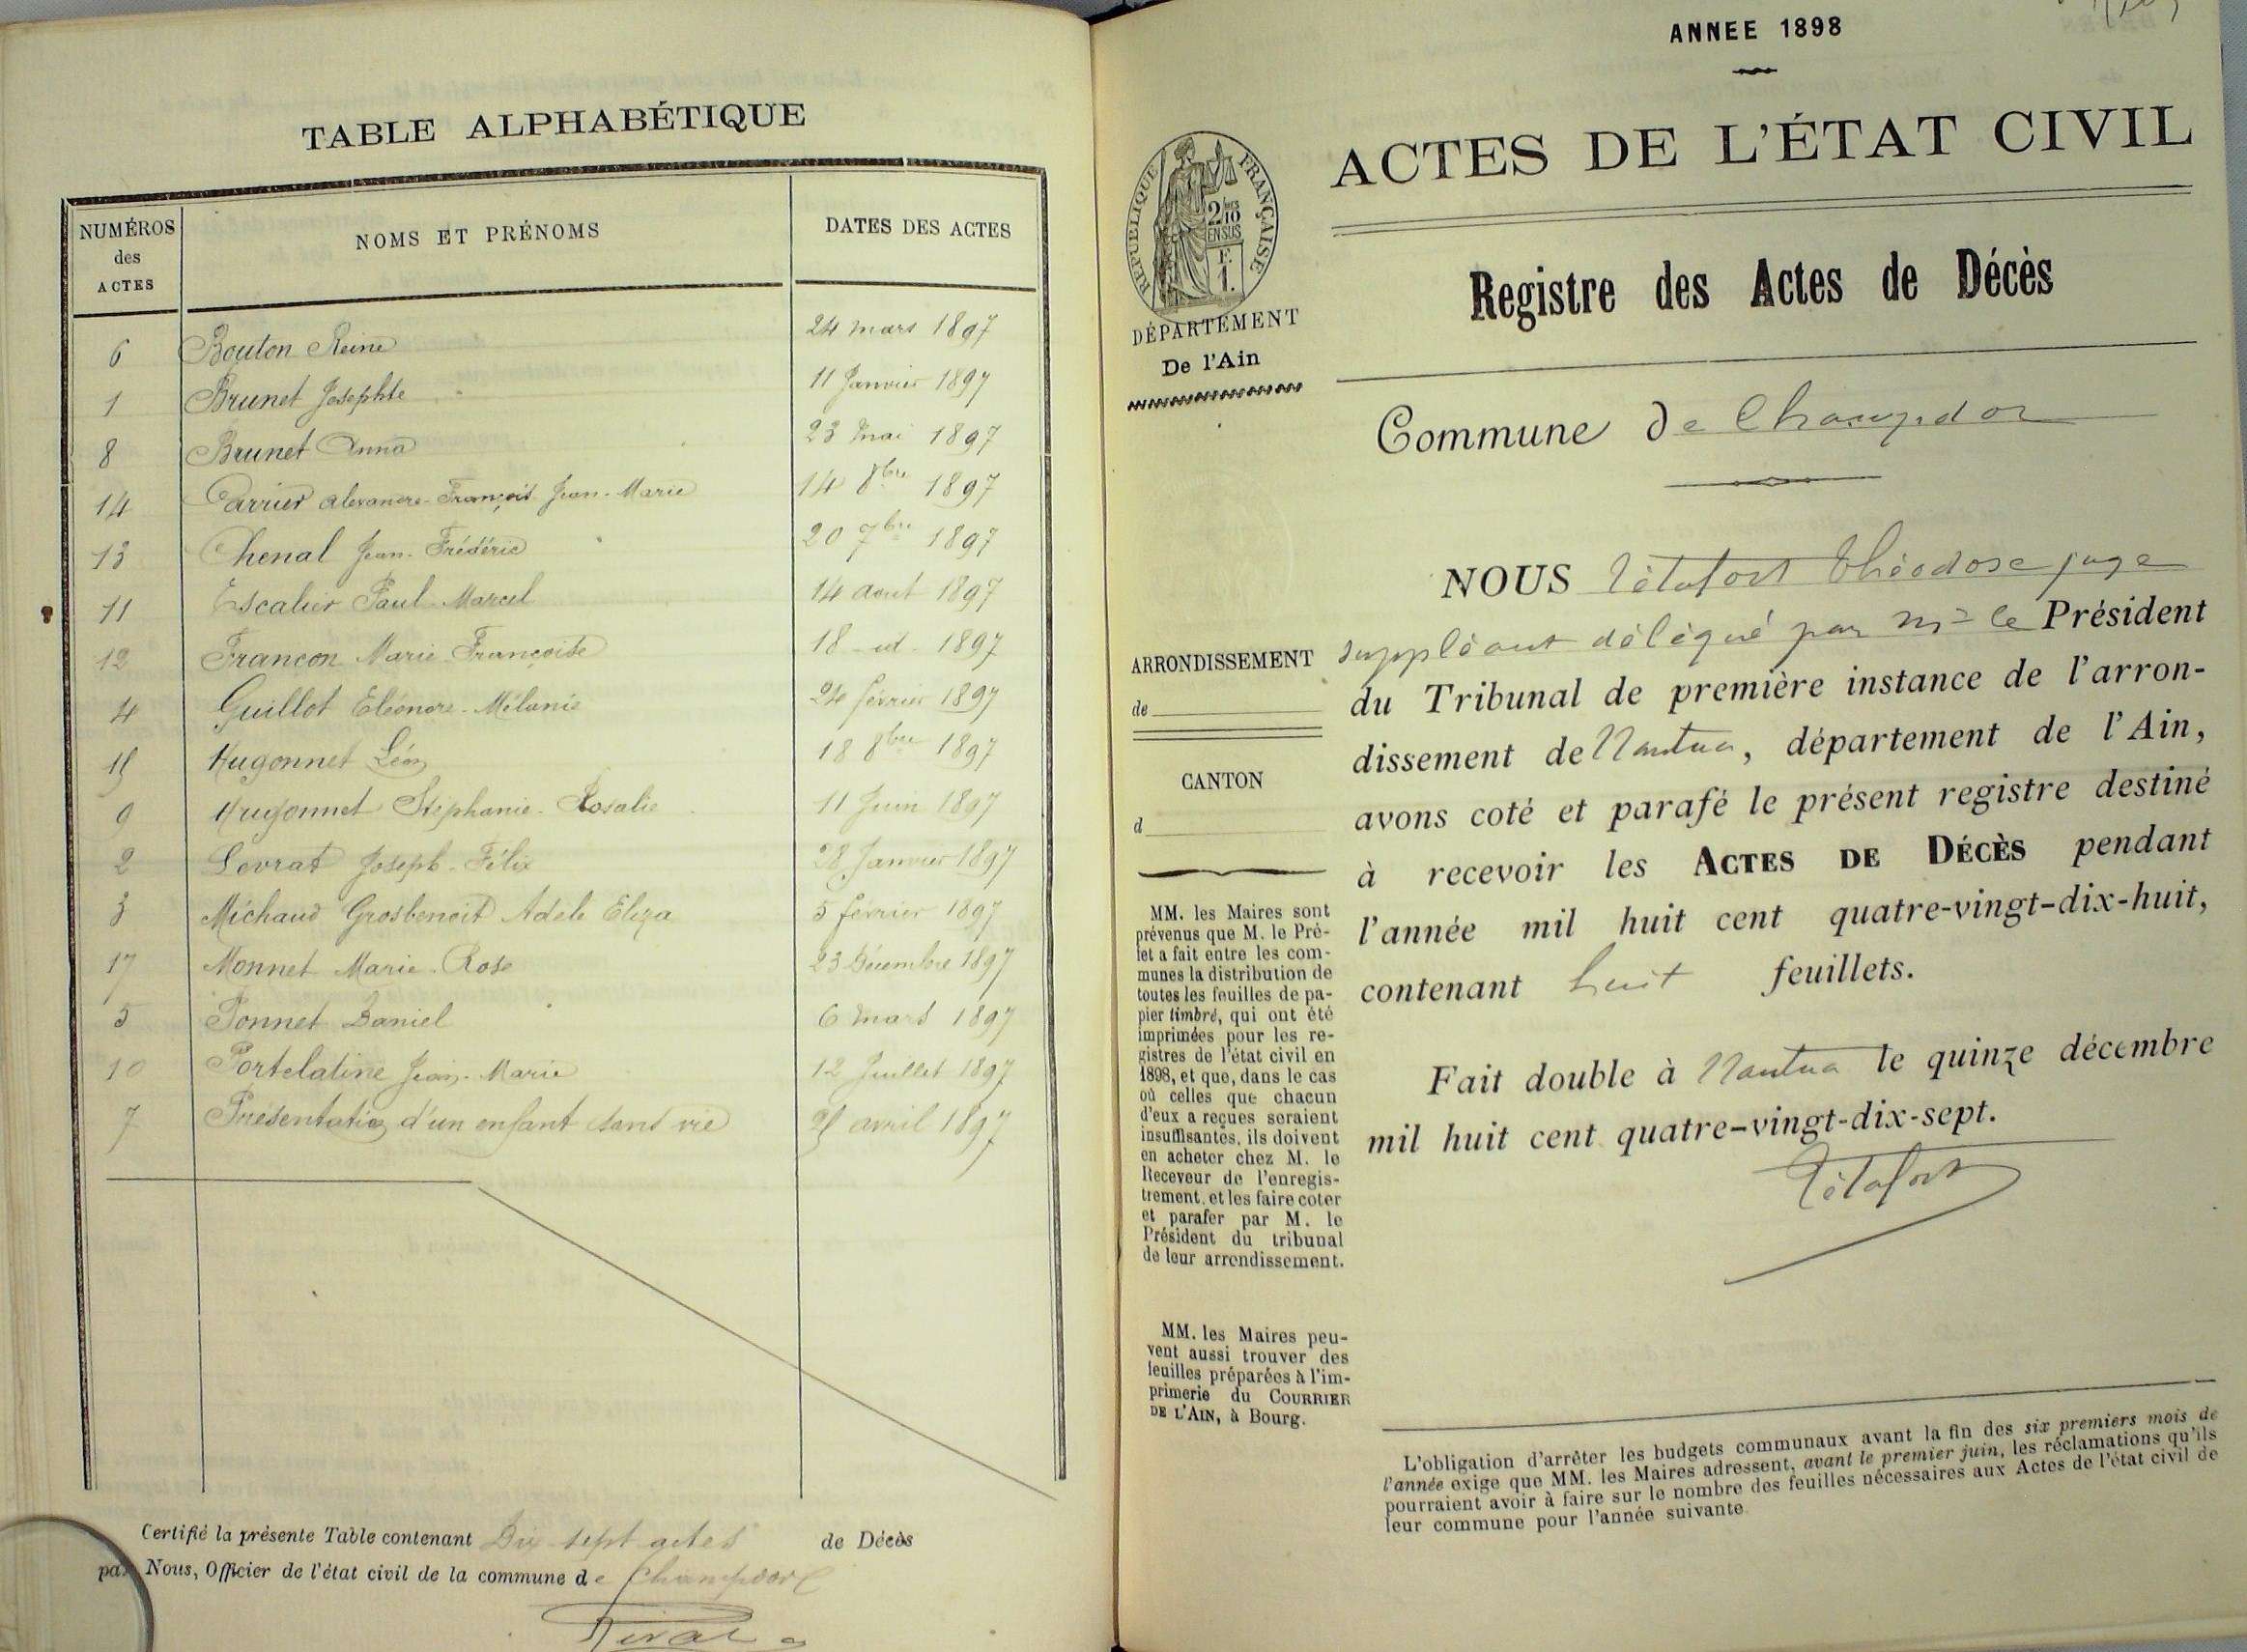 TABLE ALPHABÉTIQUE
NUMÉROS
des
ACTES
NOMS ET PRÉNOMS
DATES DES ACTES
6 Bouton Reine 24 mars 1897
1 Brunet Josephte 11 Janvier 1897
8 Brunet Anna 23 Mai 1897
14 Carrier alexandre-François Jean-Marie 14 8bre 1897
13 Chenal Jean-Frédéric 20 7bre 1897
11 Escalier Paul-Marcel 14 aout 1897
12 Francon Marie-Françoise 18 - id - 1897
4 Guillot Eléonore-Mélanie 24 février 1897
15 Hugonnet Léon 18 8bre 1897
9 Hugonnet Stéphanie-Rosalie 11 Juin 1897
2 Levrat Joseph-Félix 28 Janvier 1897
3 Michaud Grosbenoit Adele Eliza 5 février 1897
17 Monnet Marie-Rose 23 Décembre 1897
5 Ponnet Daniel 6 mars 1897
10 Portelatine Jean-Marie 12 Juillet 1897
7 Présentation d'un enfant sans vie avril 1897
Certifié la présente Table contenant Dix sept actes de Décès
par Nous, Officier de l'état civil de la commune de Champdor
ANNEE 1898
ACTES DE L'ÉTAT CIVIL
RÉPUBLIQUE FRANÇAISE
2/10
EN SUS
F.
1.
DÉPARTEMENT
De l'Ain
Registre des Actes de Décès
Commune de Champdor
NOUS Tétafort Théodose juge
suppléant délégué par Mr le Président
du Tribunal de première instance de l'arron-
dissement de Nantua, département de l'Ain,
avons coté et parafé le présent registre destiné
à recevoir les ACTES DE DÉCÈS pendant
l'année mil huit cent quatre-vingt-dix-huit,
contenant huit feuillets.
Fait double à Nantua le quinze décembre
mil huit cent quatre-vingt-dix-sept.
Tétafort
ARRONDISSEMENT
de
CANTON
d
MM. les Maires sont
prévenus que M. le Pré-
fet a fait entre les com-
munes la distribution de
toutes les feuilles de pa-
pier timbré, qui ont été
imprimées pour les re-
gistres de l'état civil en
1898, et que, dans le cas
où celles que chacun
d'eux a reçues seraient
insuffisantes, ils doivent
en acheter chez M. le
Receveur de l'enregis-
trement, et les faire coter
et parafer par M. le
Président du tribunal
de leur arrondissement.
MM. les Maires peu-
vent aussi trouver des
feuilles préparées à l'im-
primerie du COURRIER
DE L'AIN, à Bourg.
L'obligation d'arrêter les budgets communaux avant la fin des six premiers mois de
l'année exige que MM. les Maires adressent, avant le premier juin, les réclamations qu'ils
pourraient avoir à faire sur le nombre des feuilles nécessaires aux Actes de l'état civil de
leur commune pour l'année suivante.